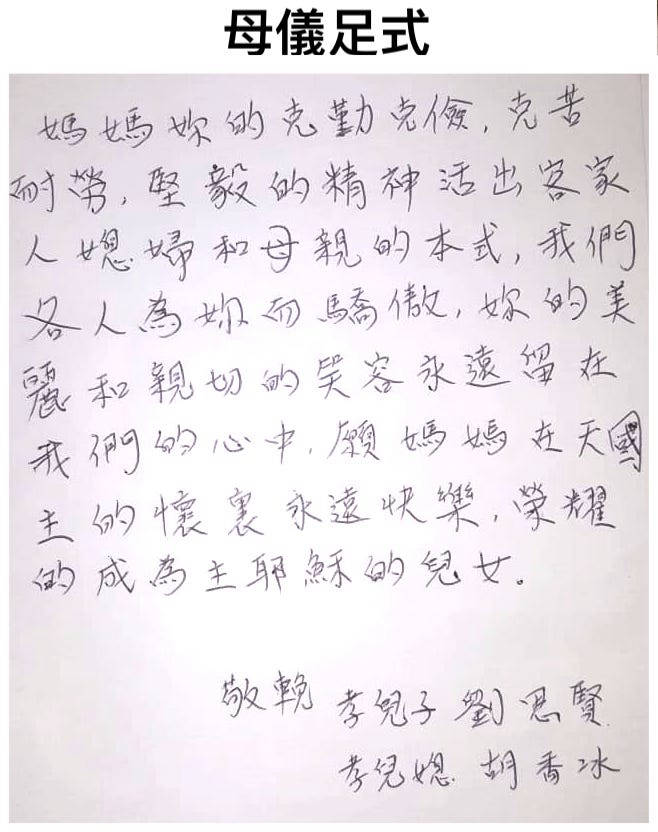 母儀足式
媽媽妳的克勤克儉，克苦
耐勞，堅毅的精神活出客家
人媳婦和母親的本式，我們
各人為妳而驕傲，妳的美
麗和親切的笑容永遠留在
我們的心中，願媽媽在天國
主的懷裏永遠快樂，榮耀
的成為主耶穌的兒女。
敬輓 孝兒子 劉思賢
孝兒媳 胡香冰